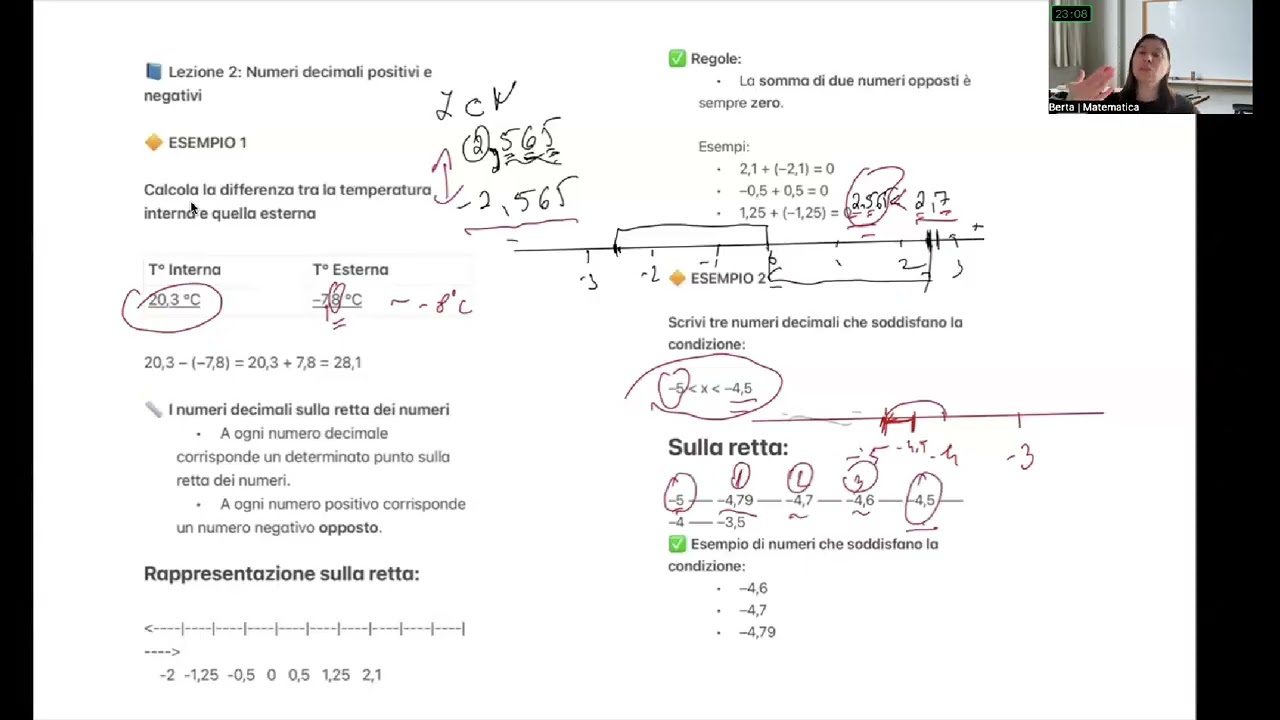 Lezione 2: Numeri decimali positivi e
negativi
ESEMPIO 1
Calcola la differenza tra la temperatura
interna e quella esterna
T° Interna T° Esterna
20,3 °C –7,8 °C ~ -8°C
20,3 – (–7,8) = 20,3 + 7,8 = 28,1
I numeri decimali sulla retta dei numeri
· A ogni numero decimale
corrisponde un determinato punto sulla
retta dei numeri.
· A ogni numero positivo corrisponde
un numero negativo opposto.
Rappresentazione sulla retta:
<----|----|----|----|----|----|----|----|----|----|
---->
-2 -1,25 -0,5 0 0,5 1,25 2,1
2,565
-2,565
Regole:
· La somma di due numeri opposti è
sempre zero.
Esempi:
· 2,1 + (–2,1) = 0
· –0,5 + 0,5 = 0
· 1,25 + (–1,25) = 0
2,565 < 2,7
- +
-3 -2 -1 0 1 2 3
ESEMPIO 2
Scrivi tre numeri decimali che soddisfano la
condizione:
–5 < x < –4,5
Sulla retta:
-5 -4,5 -4 -3
1 2 3
–5 —– –4,79 —– –4,7 —– –4,6 —– –4,5 —–
–4 —– –3,5
Esempio di numeri che soddisfano la
condizione:
· –4,6
· –4,7
· –4,79
23:08
Berta | Matematica